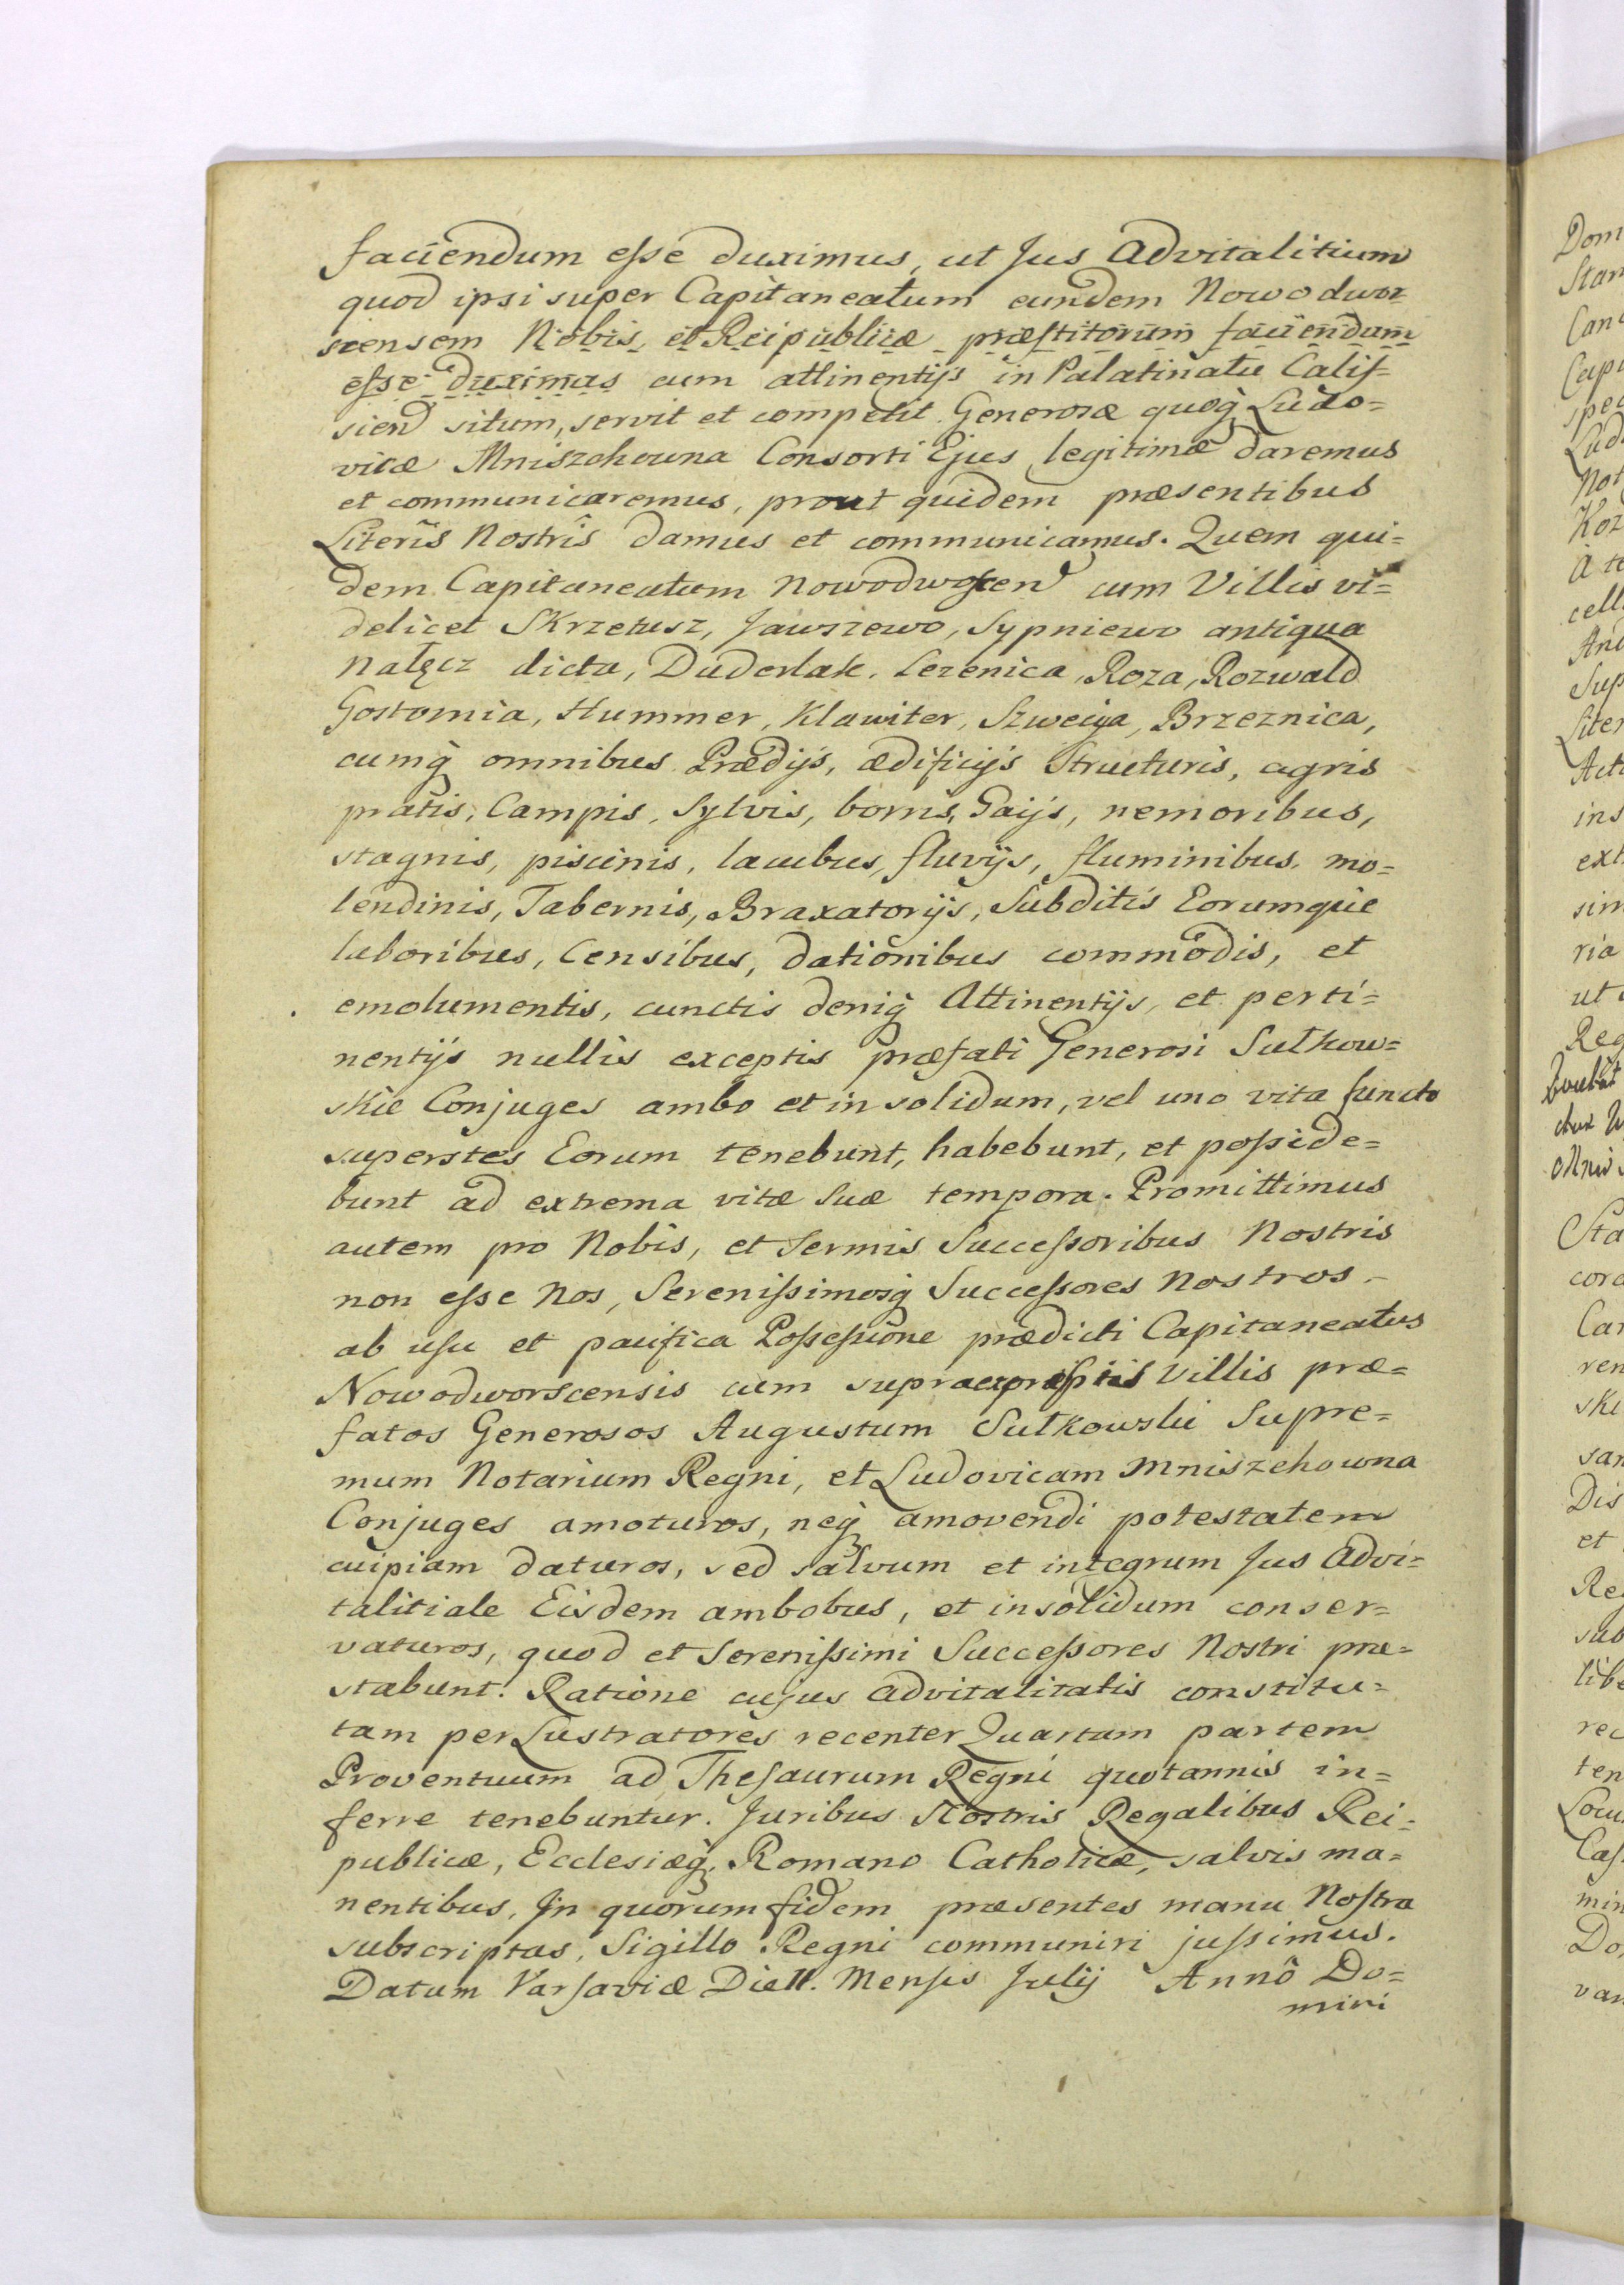 faciendum esse duximus, ut Jus Advitalitium
quod ipsi super Capitaneatum eundem Nowodwor
scensem Nobis, et Reipublicæ præstitorum faciendum
esse duximus cum attinentijs in Palatinatu Calis=
sien situm, servit et competit Generosæ quoq̀ Ludo=
vicæ Mniszchowna Consorti Ejus legitimæ daremus
et communicaremus, prout quidem præsentibus
Literis Nostris damus et communicamus. Quem qui=
dem Capitaneatum Nowodwoscen cum Villis vi=
delicet Skrzetusz, Jawszewo, Sypniewo antiqua
Nałęcz dicta, Duderlak, Lezenica, Roza, Rozwald
Gostomia, Hummer, Klawiter, Szweiya, Brzeznica,
cumq̀ omnibus Prædijs, ædificijs Structuris, agris
pratis, Campis, Sylvis, borris, Gaijs, nemoribus,
stagnis, piscinis, lacubus, fluvijs, fluminibus, mo=
lendinis, Tabernis, Braxatorijs, Subditis Eorumque
laboribus, Censibus, dationibus commodis, et
emolumentis, cunctis deniq̀ Attinentijs, et perti=
nentijs nullis exceptis præfati Generosi Sułkow=
skie Conjuges ambo et in solidum, vel uno vita functo
superstes Eorum tenebunt, habebunt, et posside=
bunt ad extrema vitæ suæ tempora. Promittimus
autem pro Nobis, et Sermis Successoribus Nostris
non esse Nos, Serenissimosq̀ Successores Nostros
ab usu et pacifica Possessione prædicti Capitaneatus
Nowodworscensis cum supraexpressis Villis præ=
fatos Generosos Augustum Sułkowski Supre=
mum Notarium Regni, et Ludovicam Mniszchowna
Conjuges amoturos, neq̀ amovendi potestatem
cuipiam daturos, sed salvum et integrum Jus Advi=
talitiale Eisdem ambobus, et insolidum conser=
vaturos, quod et Serenissimi Successores Nostri præ=
stabunt. Ratione cujus Advitalitatis constitu=
tam per Lustratores recenter Quartam partem
Proventuum ad Thesaurum Regni quotannis in=
ferre tenebuntur. Juribus Nostris Regalibus Rei=
publicæ, Ecclesiæq̀, Romano Catholicæ, salvis ma=
nentibus, In quorum fidem præsentes manu Nostra
subscriptas, Sigillo Regni communiri jussimus.
Datum Varsaviæ Die 11. Mensis Julij Annô Do=
mini